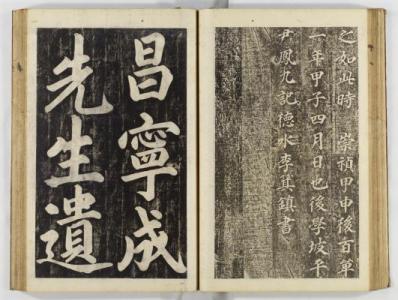 之如此時 崇禎甲申後百單
一年甲子四月日也後學坡平
尹鳳九記德水李箕鎮書
昌寧成
先生遺